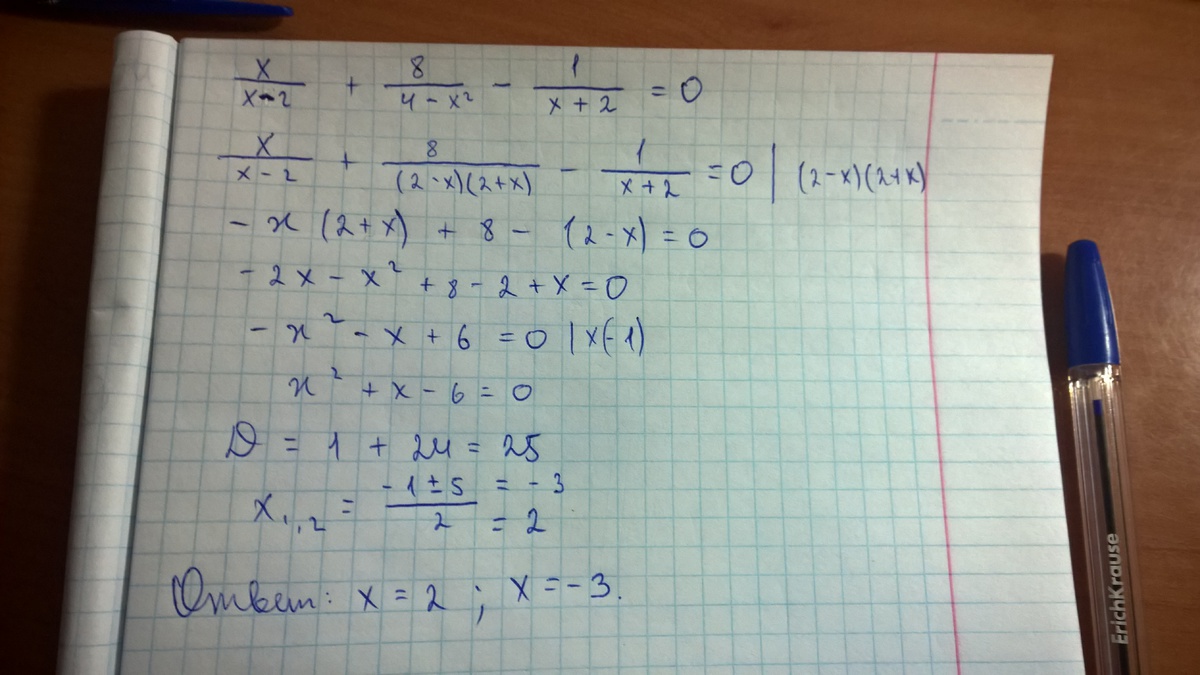 x/(x-2) + 8/(4-x²) - 1/(x+2) = 0
x/(x-2) + 8/((2-x)(2+x)) - 1/(x+2) = 0 | (2-x)(2+x)
- x (2+x) + 8 - (2-x) = 0
- 2x - x² + 8 - 2 + x = 0
- x² - x + 6 = 0 | x(-1)
x² + x - 6 = 0
D = 1 + 24 = 25
x₁,₂ = (-1 ± 5)/2 = -3
= 2
Ответ: x = 2 ; x = -3.
ErichKrause